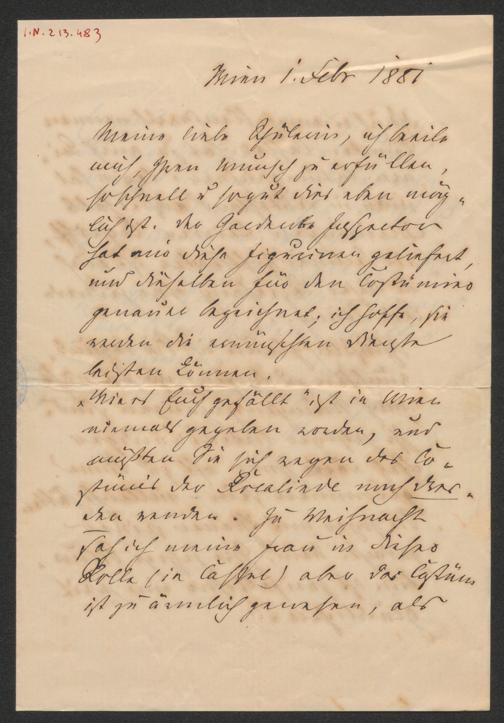 I.N. 213.483
Wien 1. Febr 1881
Meine liebe Schülerin, ich beeile
mich, Ihren Wunsch zu erfüllen,
so schnell u so gut dies eben mög-
lich ist. Der Garderobe Inspector
hat mir diese Figurinen geliefert,
und dieselben für den Costümier
genauer bezeichnet; ich hoffe, sie
werden die erwünschten Dienste
leisten können.
„Wie es Euch gefällt" ist in Wien
niemals gegeben worden, und
müßten Sie sich wegen des Co-
stüms der Rosalinde nach Dres-
den wenden. Zu Weihnacht
sah ich meine Frau in dieser
Rolle (in Cassel) aber das Costüm
ist zu ärmlich gewesen, als